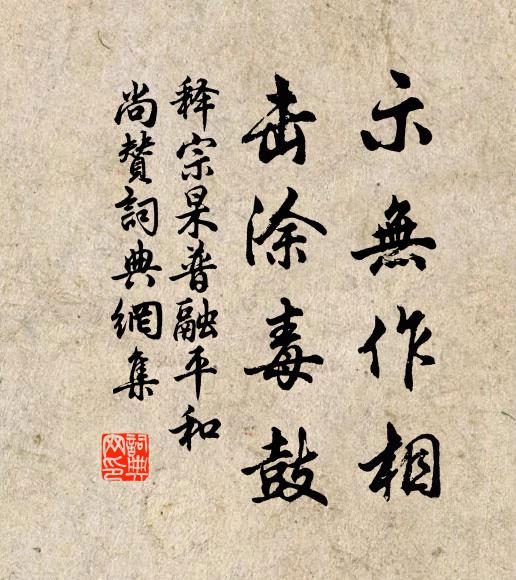 示無作相
击涂毒鼓
释宗杲普融平和
尚赞詞典網集
詞典网印